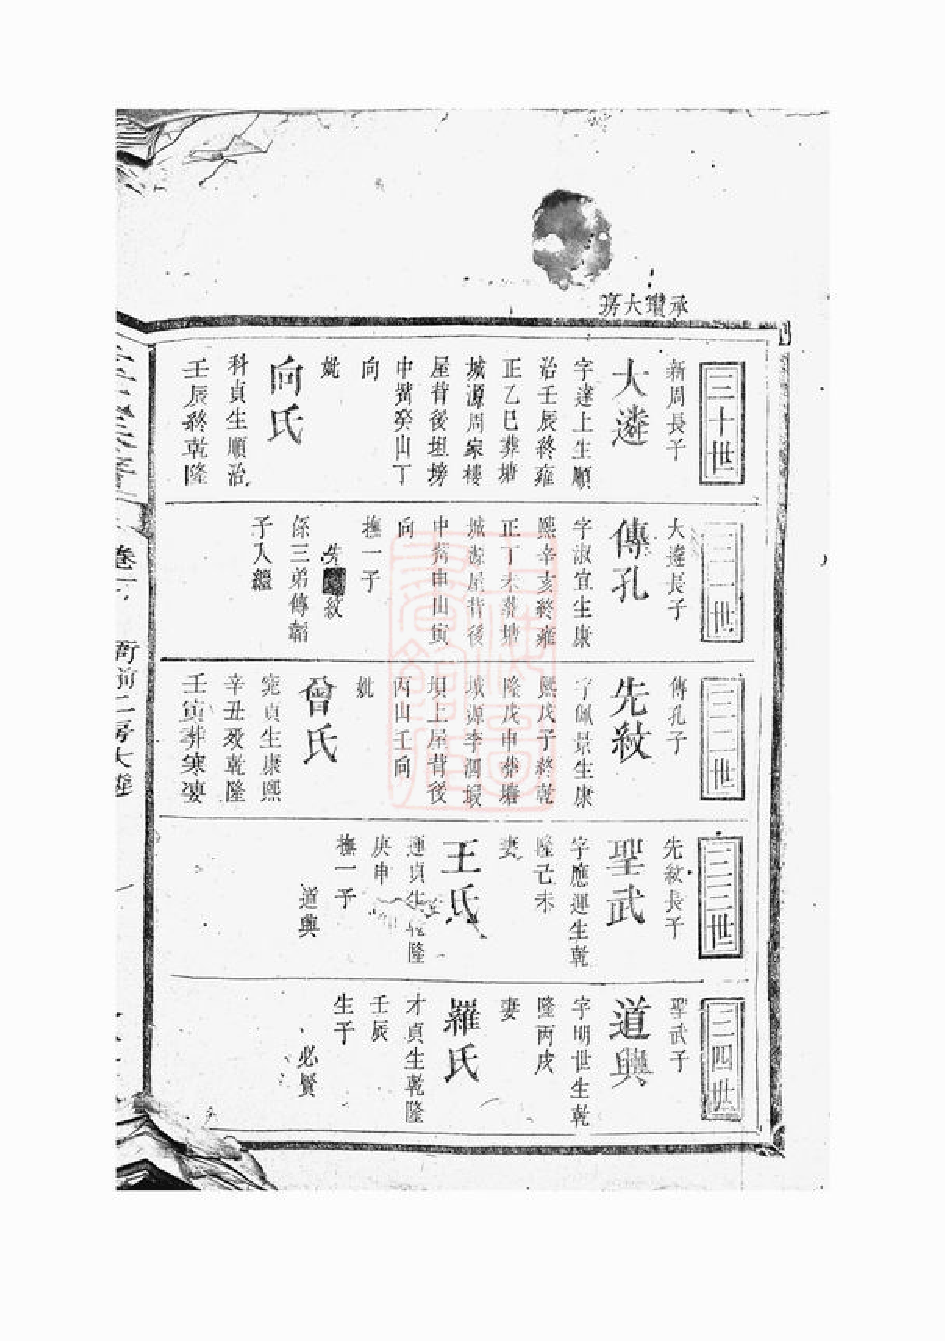 承瓚大房
三十世
新周長子
大遴
字達上生順
治壬辰終雍
正乙巳葬塘
城源周家樓
屋背後坦塝
中擠癸山丁
向
妣
向氏
科貞生順治
壬辰終乾隆
三一世
大遴長子
傳孔
字淑宜生康
熙辛亥終雍
正丁未葬塘
城源屋背後
中擠申山寅
向
撫一子
先紋
係三弟傳韜
子入繼
三二世
傳孔子
先紋
字佩景生康
熙戊子終乾
隆戊申葬塘
城源李泗塅
垻上屋背後
丙山壬向
妣
曾氏
宛貞生康熙
辛丑歿乾隆
壬寅葬寒婆
三三世
先紋長子
聖武
字應運生乾
隆己未
妻
王氏
運貞生乾隆
庚申
撫一子
道興
三四世
聖武子
道興
字明世生乾
隆丙戌
妻
羅氏
才貞生乾隆
壬辰
生子
必賢
卷
衖前二房大遴